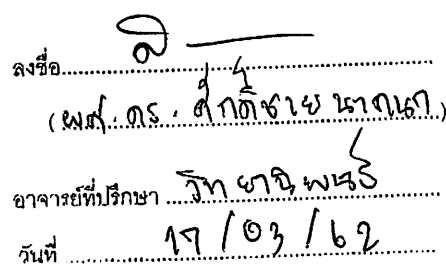 ลงชื่อ
(ผศ. ดร. ศักดิ์ชาย นาคนก)
อาจารย์ที่ปรึกษา วิทยานิพนธ์
วันที่ 17/03/62